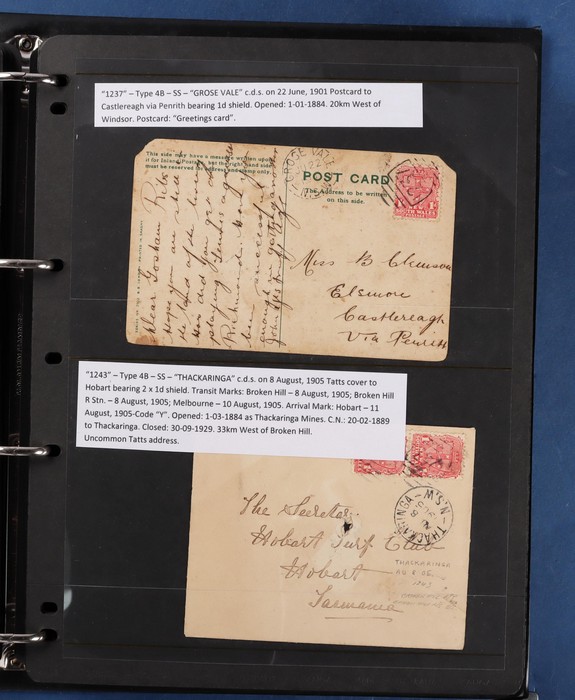 "1237" – Type 4B – SS – "GROSE VALE" c.d.s. on 22 June, 1901 Postcard to
Castlereagh via Penrith bearing 1d shield. Opened: 1-01-1884. 20km West of
Windsor. Postcard: "Greetings card".
This side may have a message written upon
it for Inland Postage, but the right hand side
must be reserved for address and stamp only.
POST CARD
The Address to be written
on this side.
GROSE VALE
Dear
Hope you are well
the end of the
How did you get on
playing Tennis
Richmond.
been successful
Miss B
Elsmore
Castlereagh
Via Penrith
"1243" – Type 4B – SS – "THACKARINGA" c.d.s. on 8 August, 1905 Tatts cover to
Hobart bearing 2 x 1d shield. Transit Marks: Broken Hill – 8 August, 1905; Broken Hill
R Stn. – 8 August, 1905; Melbourne – 10 August, 1905. Arrival Mark: Hobart – 11
August, 1905-Code "Y". Opened: 1-03-1884 as Thackaringa Mines. C.N.: 20-02-1889
to Thackaringa. Closed: 30-09-1929. 33km West of Broken Hill.
Uncommon Tatts address.
The Secretar
Hobart Turf Club
Hobart
Tasmania
THACKARINGA N.S.W
THACKARINGA
AU 8 05
1243